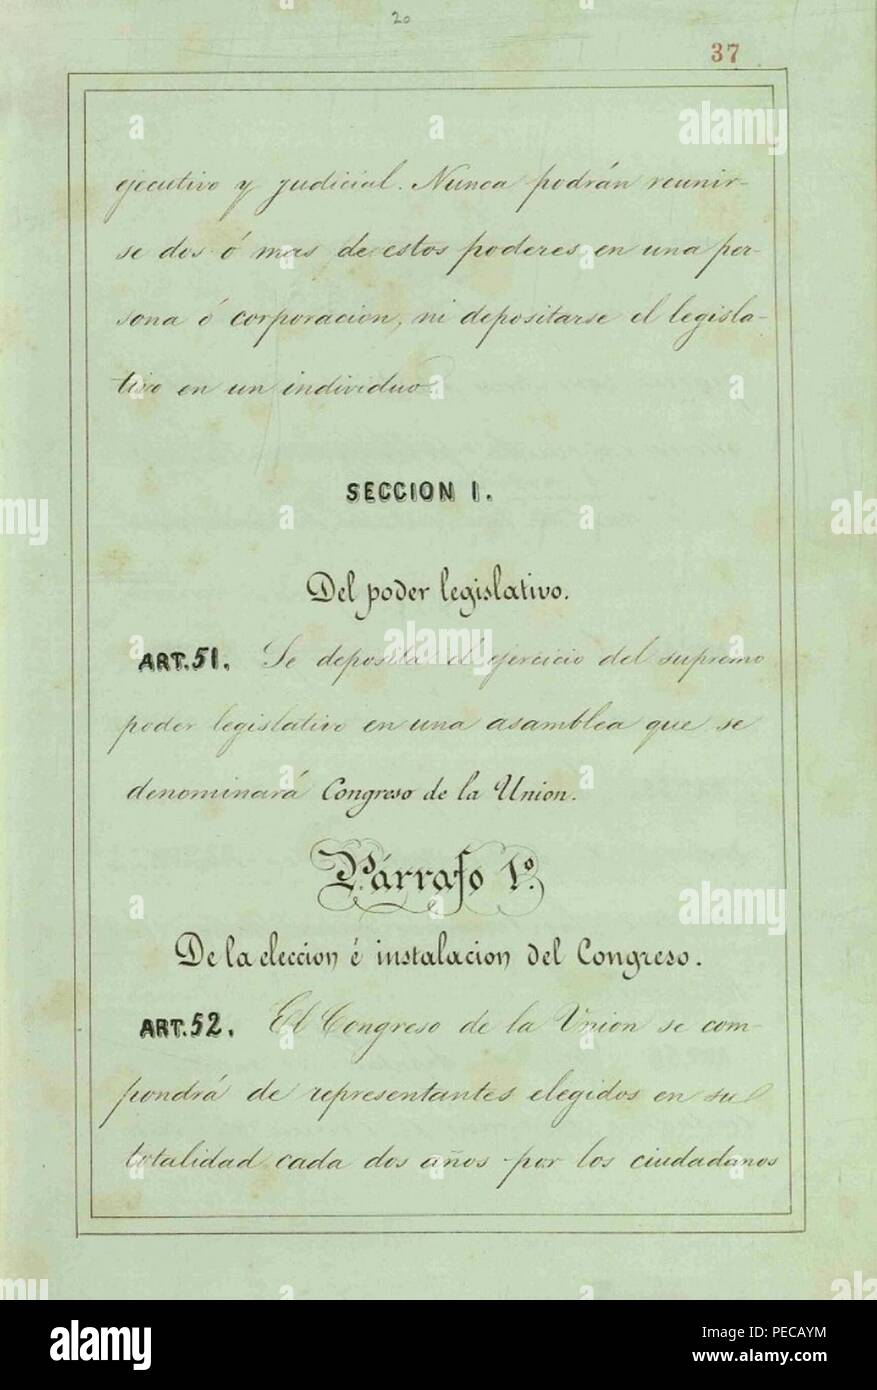 20
37
ejecutivo y judicial. Nunca podrán reunir-
se dos ó mas de estos poderes en una per-
sona ó corporacion, ni depositarse el legisla-
tivo en un individuo.
SECCION I.
Del poder legislativo.
ART. 51. Se deposita el ejercicio del supremo
poder legislativo en una asamblea que se
denominará Congreso de la Union.
Párrafo 1º.
De la eleccion é instalacion del Congreso.
ART. 52. El Congreso de la Union se com-
pondrá de representantes elegidos en su
totalidad cada dos años por los ciudadanos
alamy
Image ID: PECAYM
www.alamy.com